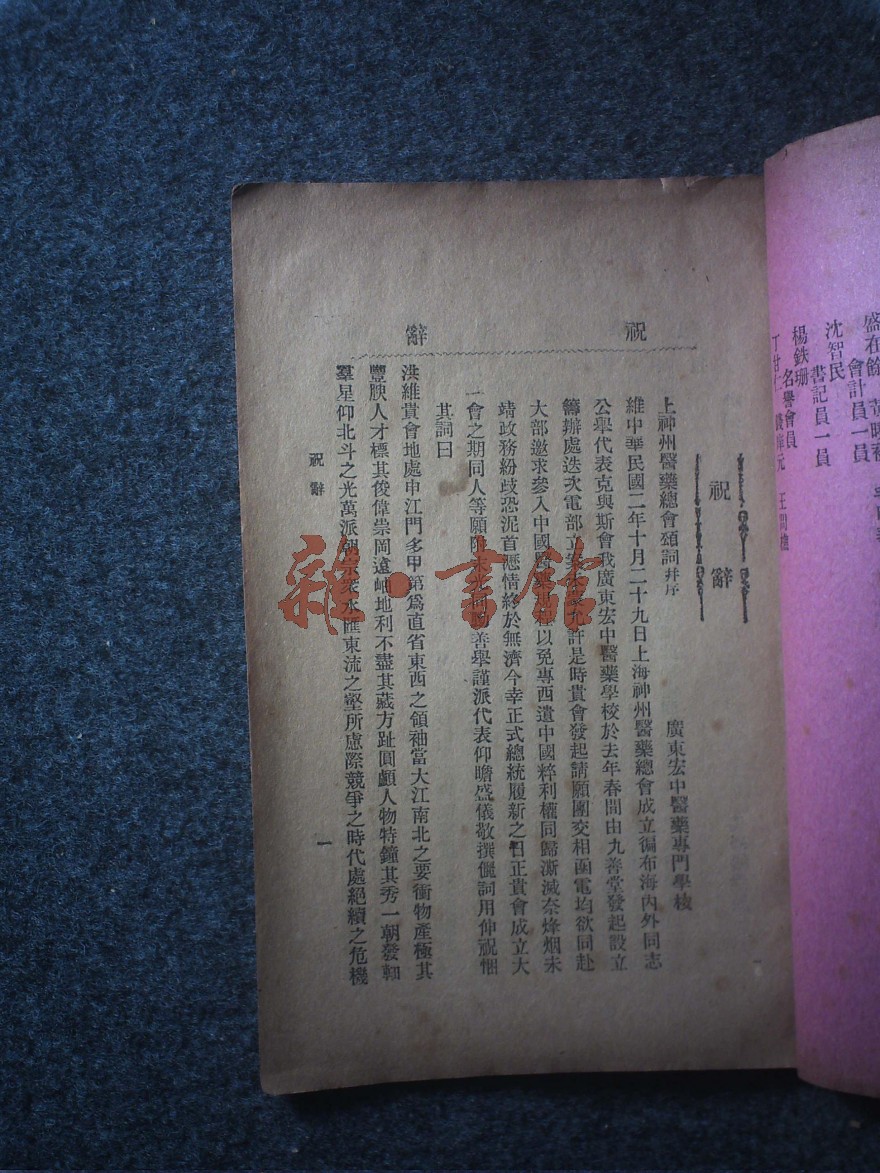 沈智民
會計員一員
書記員一員
楊鉄珊
名譽會員
祝辭
祝辭
上神州醫藥總會頌詞并序
廣東宏中醫藥專門學校
維中華民國二年十月二十九日上海神州醫藥總會成立徧布海內外同志
公舉代表克與斯會我廣東宏中醫藥學校於去年春間由九善堂發起設立
籌辦處迭次電部立案允許是時貴會發起請願團交相函電均欲同赴
大部邀求參入中國醫藥以免專西遺中國粹利權同歸澌滅奈烽烟未
靖政務紛歧恐泥首懣情終於無濟今幸正式總統履新之日正貴會成立大
一會之期同人等願善舉謹派代表仰瞻盛儀敬撰儷詞用伸祝悃
其詞曰
洪維貴會地處申江門多甲第爲直省東西之領袖當大江南北之要衝物產極其
豐腴人才標其俊偉崇岡遠岫地利不盡其藏方趾圓顱人物特鐘其秀一朝發軔
羣星仰北斗之光萬派朝宗衆水匯東流之壑所慮際競爭之時代處絕續之危機
祝辭
一
雜·書館